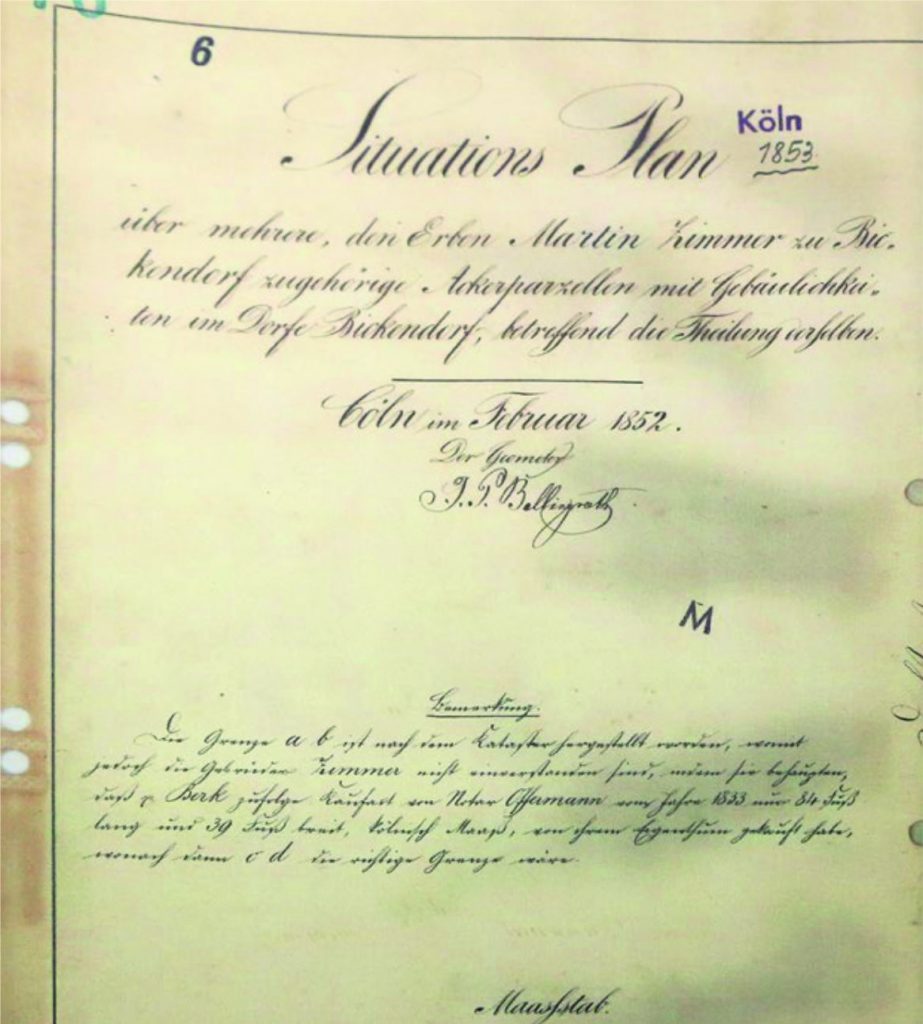 6
Situations Plan
Köln
1853.
über mehrere, den Erben Martin Zimmer zu Bic-
kendorf zugehörige Ackerparzellen mit Gebäulichkei-
ten im Dorfe Bickendorf, betreffend die Theilung derselben.
Cöln im Februar 1852.
Der Geometer
J. P. Bellingrath
M
Bemerkung.
Die Grenze a b ist nach dem Kataster hergestellt worden, womit
jedoch die Gebrüder Zimmer nicht einverstanden sind, indem sie behaupten,
daß p. Berk zufolge Kaufact von Notar Offermann vom Jahre 1833 nur 84 Fuß
lang und 39 Fuß breit, kölnisch Maaß, von ihrem Eigenthum gekauft habe,
wonach dann c d die richtige Grenze wäre.
Maasstab.